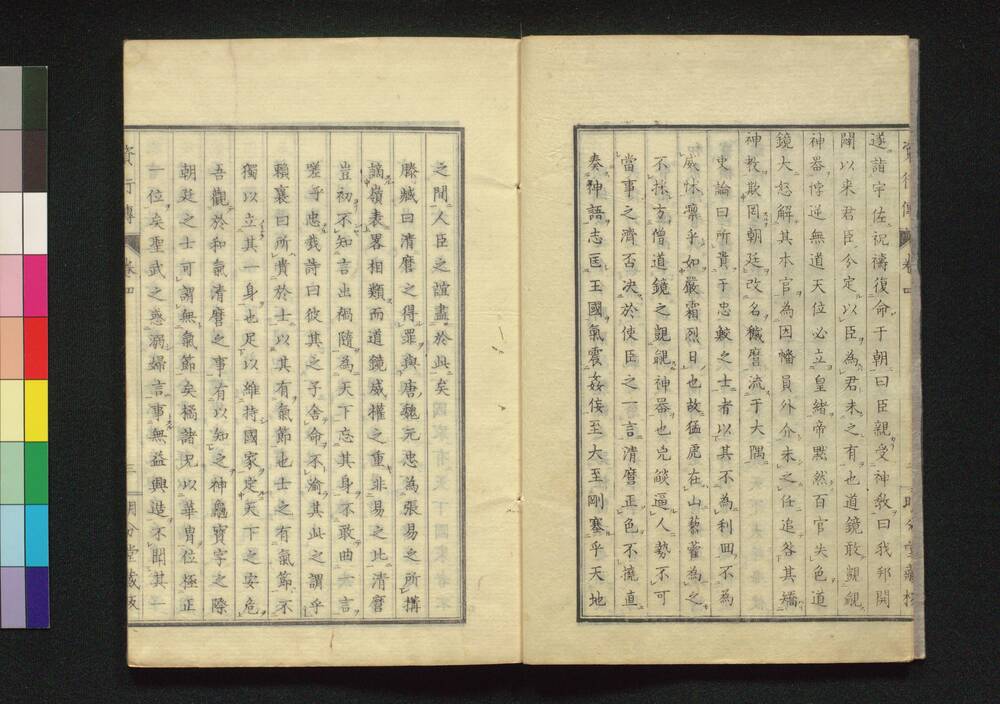 遂詣宇佐祝禱復命于朝曰臣親受神敎曰我邦開
闢以来君臣分定以臣為君未之有也道鏡敢覬覦
神器悖逆無道天位必立皇緒帝黙然百官失色道
鏡大怒解其本官為因幡員外介未之任追咎其矯
神敎欺罔朝廷改名穢麿流于大隅
史論曰所貴于忠鯁之士者以其不為利回不為
威怵凛乎如嚴霜烈日也故猛虎在山藜藿為之
不採方僧道鏡之覬覦神器也兇燄逼人勢不可
當事之濟否決於使臣之一言清麿正色不撓直
奏神語志匡王國氣震姦佞至大至剛塞乎天地
之間人臣之誼盡於此矣
滕臧曰清麿之得罪與唐魏元忠為張易之所搆
謫嶺表畧相類而道鏡威權之重非易之比清麿
豈初不知言出禍隨為天下忘其身不敢曲言
嗟乎忠哉詩曰彼其之子舍命不渝其此之謂乎
賴襄曰所貴於士以其有氣節也士之有氣節不
獨以立其一身也足以維持國家定天下之安危
吾觀於和氣清麿之事有以知之神龜寶字之際
朝廷之士可謂無氣節矣橘諸兄以華冑位極正
一位矣聖武之惑溺婦言事無益興造不聞其一
資行傳
卷四
三
明分堂蔵板